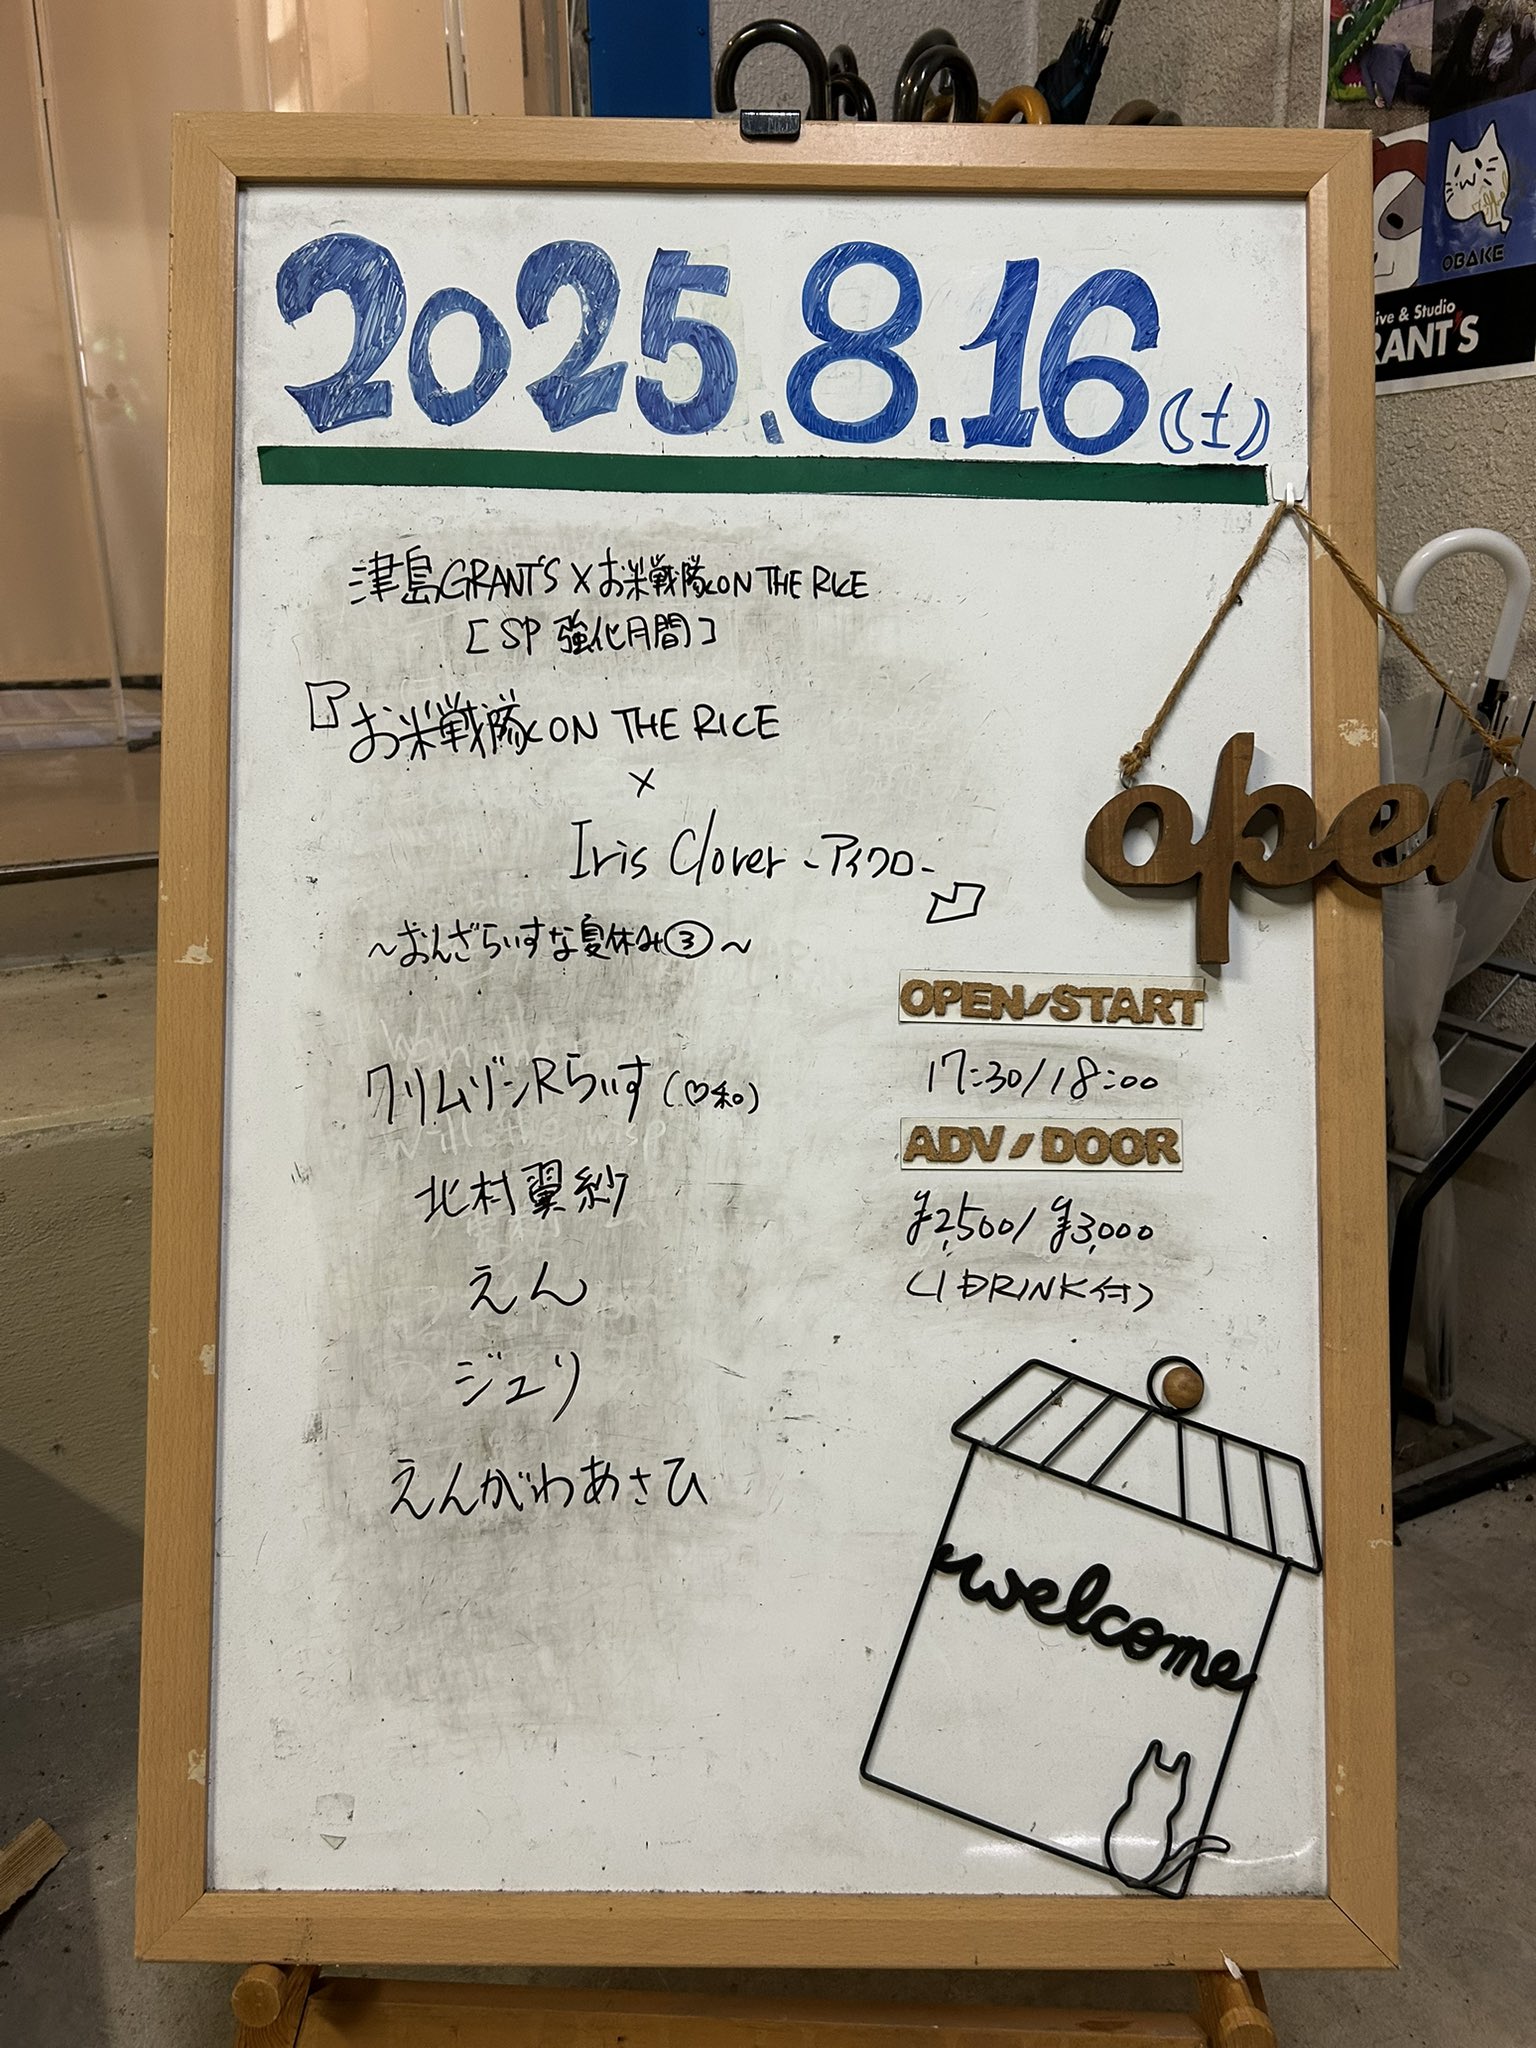 2025.8.16(土)
津島GRANT'S×お米戦隊ON THE RICE
[SP 強化月間]
『お米戦隊ON THE RICE
×
Iris Clover -アイクロ-』
~おんざらいすな夏休み③~
クリムゾンRらいす(♡和)
北村翼紗
えん
ジュリ
えんがわあさひ
open
OPEN/START
17:30/18:00
ADV/DOOR
¥2,500/¥3,000
(1DRINK付)
welcome
OBAKE
ive & Studio
RANT'S